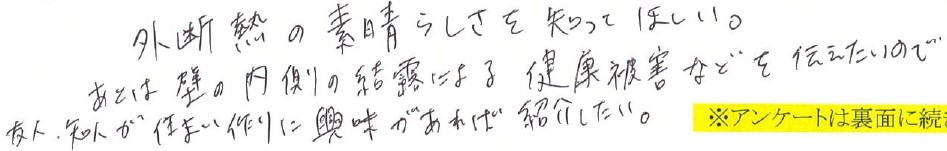 外断熱の素晴らしさを知ってほしい。
あとは壁の内側の結露による健康被害などを伝えたいので
友人・知人が住まい作りに興味があれば紹介したい。
※アンケートは裏面に続き